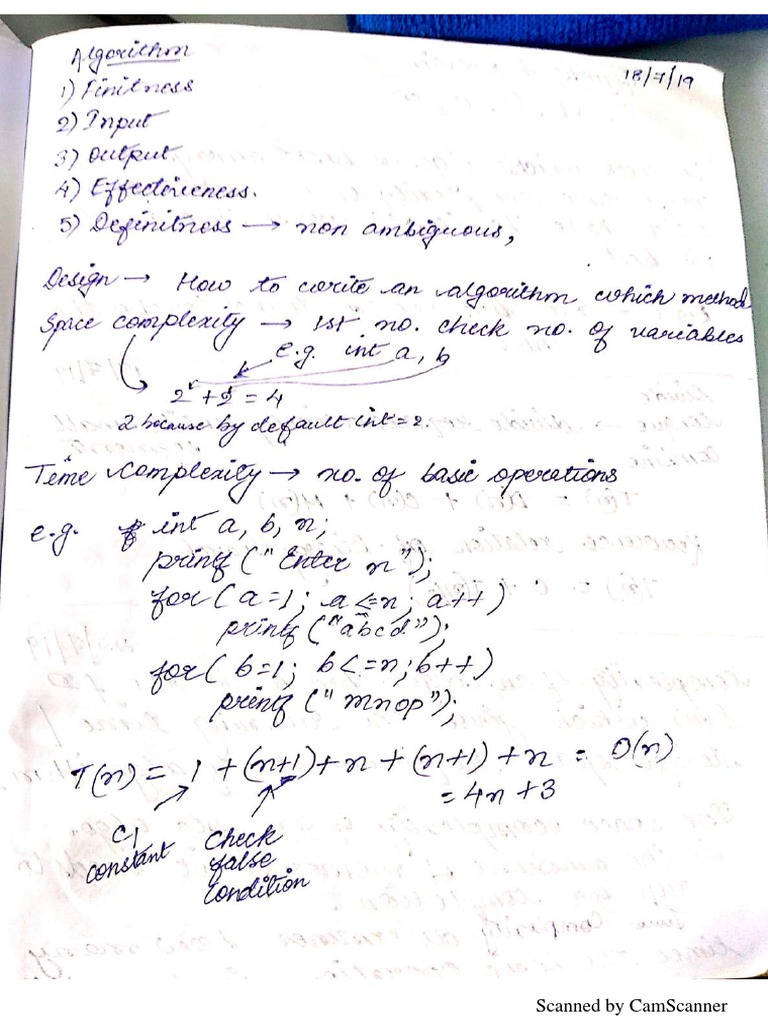 Algorithm
18/7/19
1) Finitness
2) Input
3) Output
4) Effectiveness.
5) Definitness → non ambiguous,
Design → How to write an algorithm which method
Space complexity → 1st no. check no. of variables
e.g. int a, b
2 + 2 = 4
2 because by default int = 2.
Time Complexity → no. of basic operations
e.g. int a, b, n;
printf ("Enter n");
for (a=1; a<=n; a++)
printf ("abcd");
for (b=1; b<=n; b++)
printf ("mnop");
T(n) = 1 + (n+1) + n + (n+1) + n = O(n)
= 4n + 3
C1 constant
Check false condition
Scanned by CamScanner